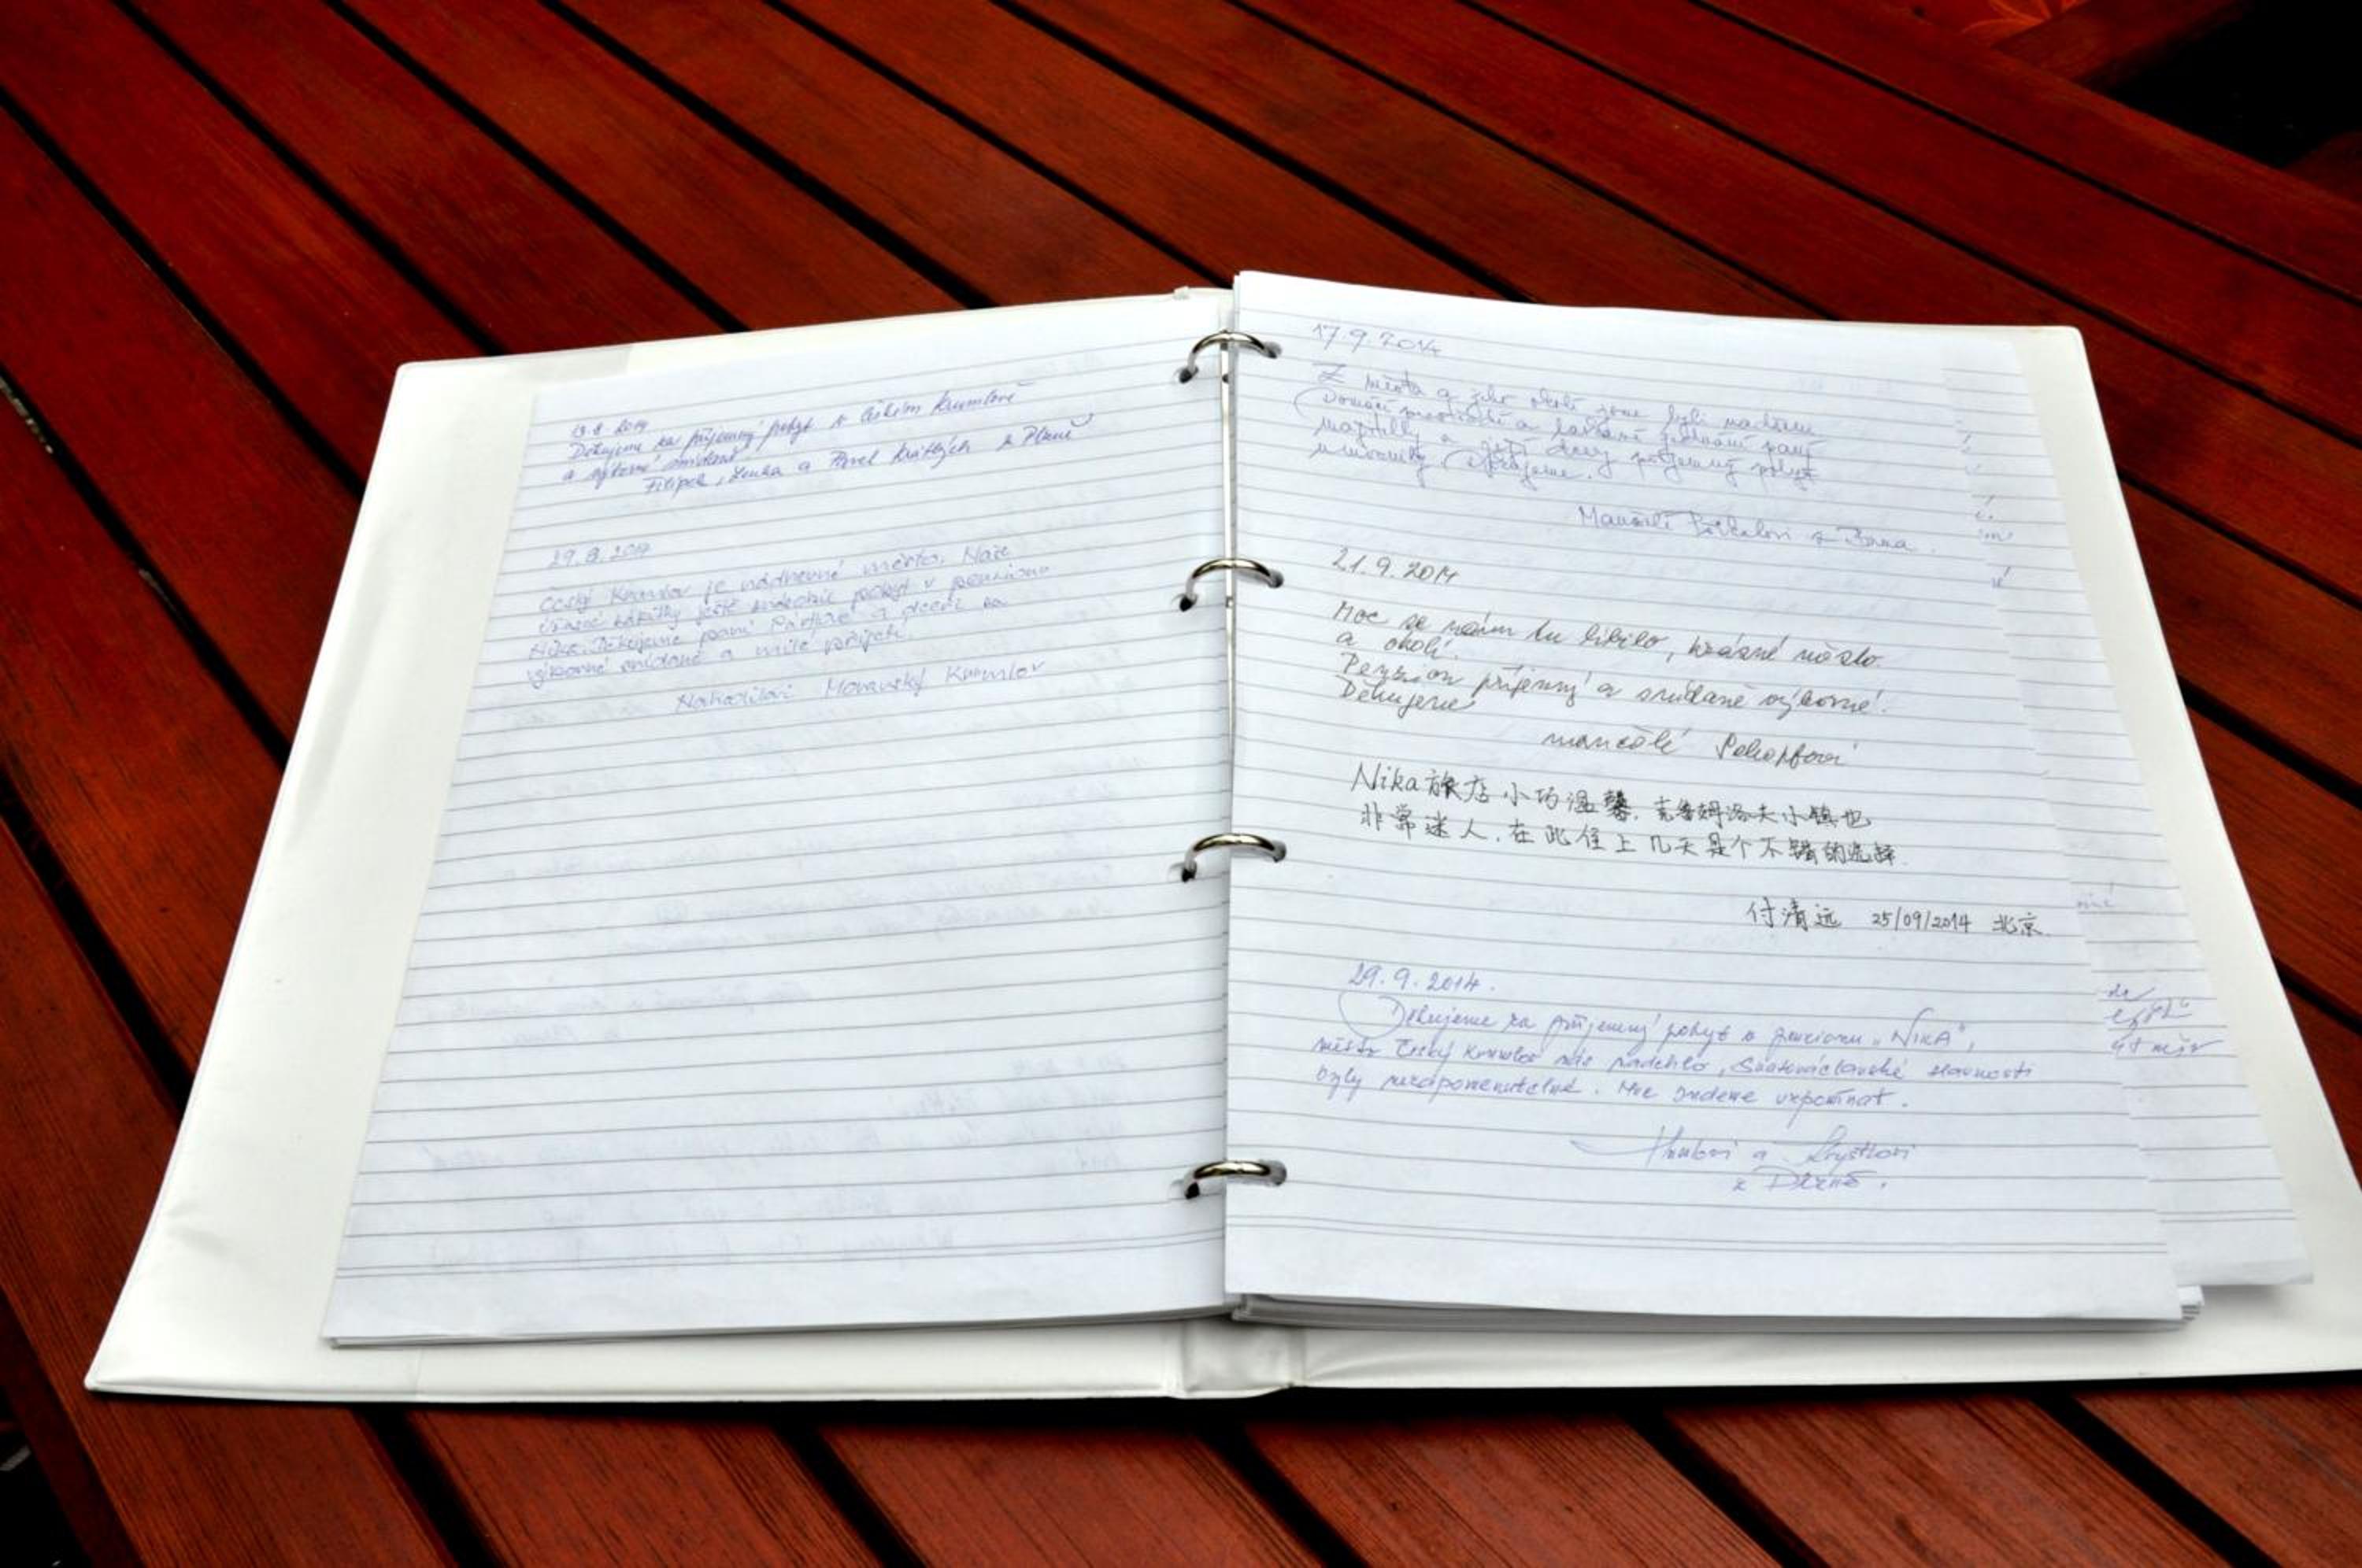 13.8.2014
Děkujeme za příjemný pobyt v Českém Krumlově
a výborné snídaně
Filípek, Lenka a Pavel Krátkých z Plzně
29.8.2014
Český Krumlov je nádherné město. Naše
zážitky ještě pobyt v penzionu
Nika. Děkujeme paní a za
výborné snídaně a milé přijetí.
Moravský Krumlov
17.9.2014
Z města a jeho okolí jsme byli nadšeni
Domácí prostředí a laskavé jednání paní
majitelky a pobyt
Manželé z Brna.
21.9.2014
Moc se nám tu líbilo, krásné město
a okolí.
Penzion příjemný a snídaně výborné.
Děkujeme
manželé
Nika旅店小巧温馨,克鲁姆洛夫小镇也
非常迷人,在此住上几天是个不错的选择.
付清远 25/09/2014 北京
29.9.2014.
Děkujeme za příjemný pobyt v penzionu „NIKA",
město Český Krumlov nás nadchlo, Svatováclavské slavnosti
byly nezapomenutelné. Moc budeme vzpomínat.
a
z Plzně.